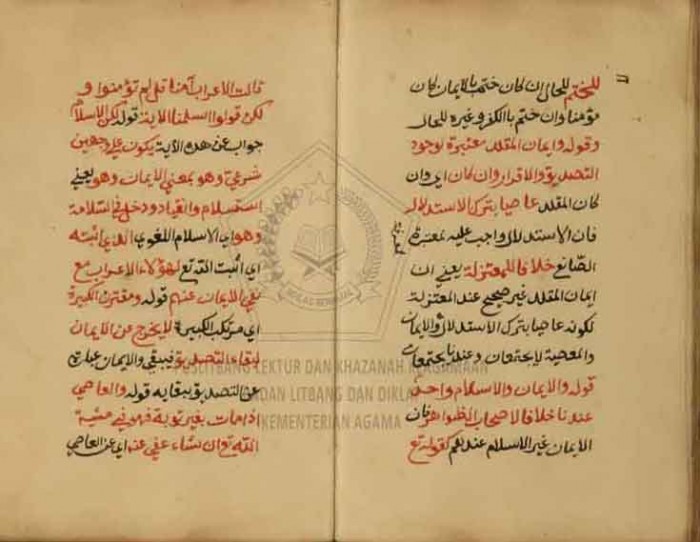 للختم للحال ان كان ختم بالايمان كان
مؤمنا وان ختم بالكفر وغيره للحال
وقوله وايمان المقلد معتبرة لوجود
التصديق والاقرار وان كان اى وان
كان المقلد عاصيا بترك الاستدلال
فان الاستدلال واجب عليه لمعرفة
الصانع خلافا للمعتزلة يعني ان
ايمان المقلد غير صحيح عند المعتزلة
لكونه عاصيا بترك الاستدلال والايمان
والمعصية لا يجتمعان وعندنا يجتمعان
قوله والايمان والاسلام واحد
عندنا خلافا لاصحاب الظواهر فان
الايمان غير الاسلام عندهم لقوله تع
قالت الاعراب آمنا قل لم تؤمنوا و
لكن قولوا اسلمنا الاية قوله لكن الاسلام
جواب عن هذه الآية يكون على وجهين
شرعي وهو بمعنى الايمان وهو يعني
استسلام وانقياد ودخل في السلامة
وهو اي الاسلام اللغوي الذي اثبته
اي اثبت الله تع لهؤلاء الاعراب مع
نفي الايمان عنهم قوله ومقترف الكبيرة
اي مرتكب الكبيرة لا يخرج من الايمان
لبقاء التصديق فيبقى والايمان عبارة
عن التصديق بقايه قوله والعاصي
اذا مات بغير توبة فهو في مشية
الله تع ان شاء عفى عنه اى عن العاصي
PUSLITBANG LEKTUR DAN KHAZANAH KEAGAMAAN
BADAN LITBANG DAN DIKLAT
KEMENTERIAN AGAMA